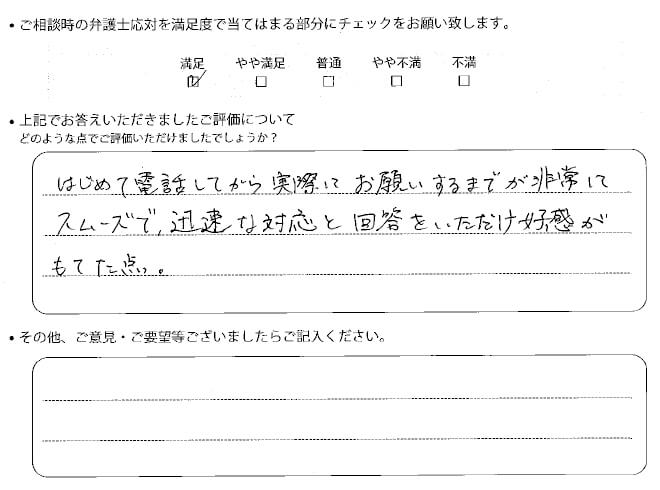 • ご相談時の弁護士応対を満足度で当てはまる部分にチェックをお願い致します。
満足 やや満足 普通 やや不満 不満
• 上記でお答えいただきましたご評価について
どのような点でご評価いただけましたでしょうか？
はじめて電話してから実際にお願いするまでが非常に
スムーズで、迅速な対応と回答をいただけ好感が
もてた点。
• その他、ご意見・ご要望等ございましたらご記入ください。